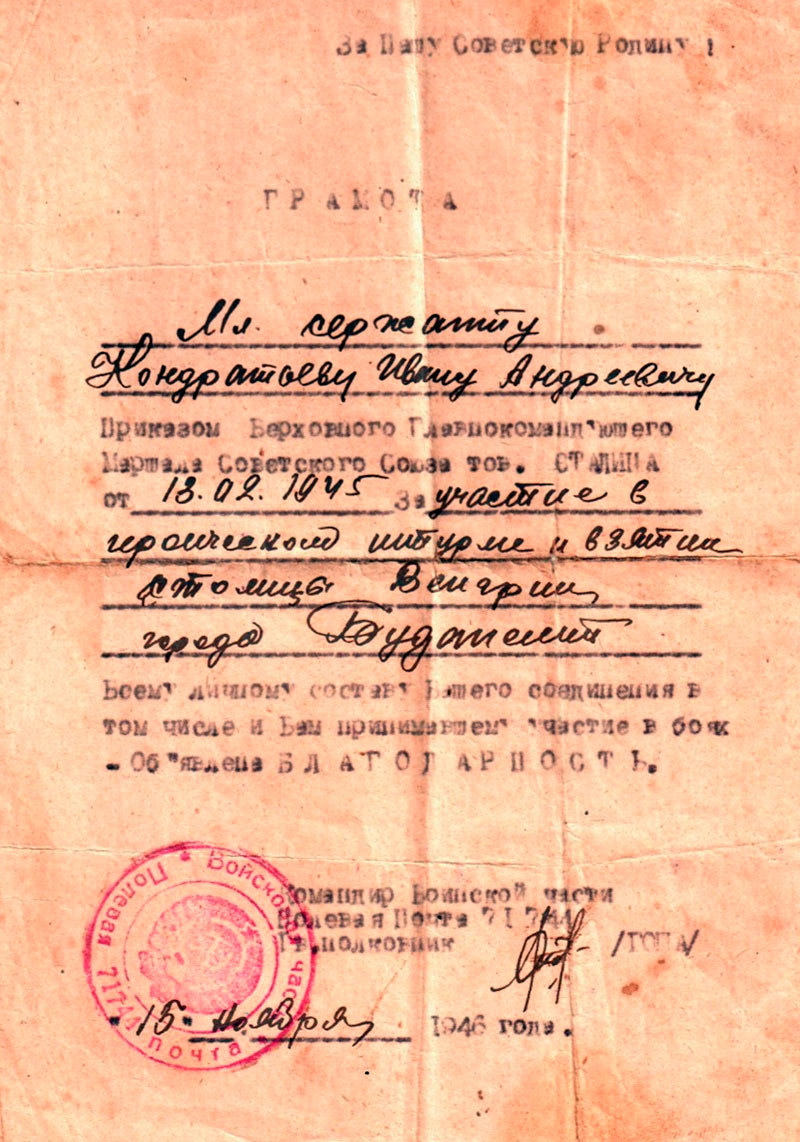 За Нашу Советскую Родину!
ГРАМОТА
Мл. сержанту
Кондратьеву Ивану Андреевичу
Приказом Верховного Главнокомандующего
Маршала Советского Союза тов. СТАЛИНА
от 13.02.1945 За участие в
героическом штурме и взятии
столицы Венгрии
города Будапешт
Всему личному составу Вашего соединения в
том числе и Вам принимавшему участие в боях
- Об"явлена БЛАГОДАРНОСТЬ.
Командир Воинской части
Полевая Почта 71744
Гв.полковник /ГОЦА/
"15" ноября 1946 года.
Войсковая часть
Полевая почта